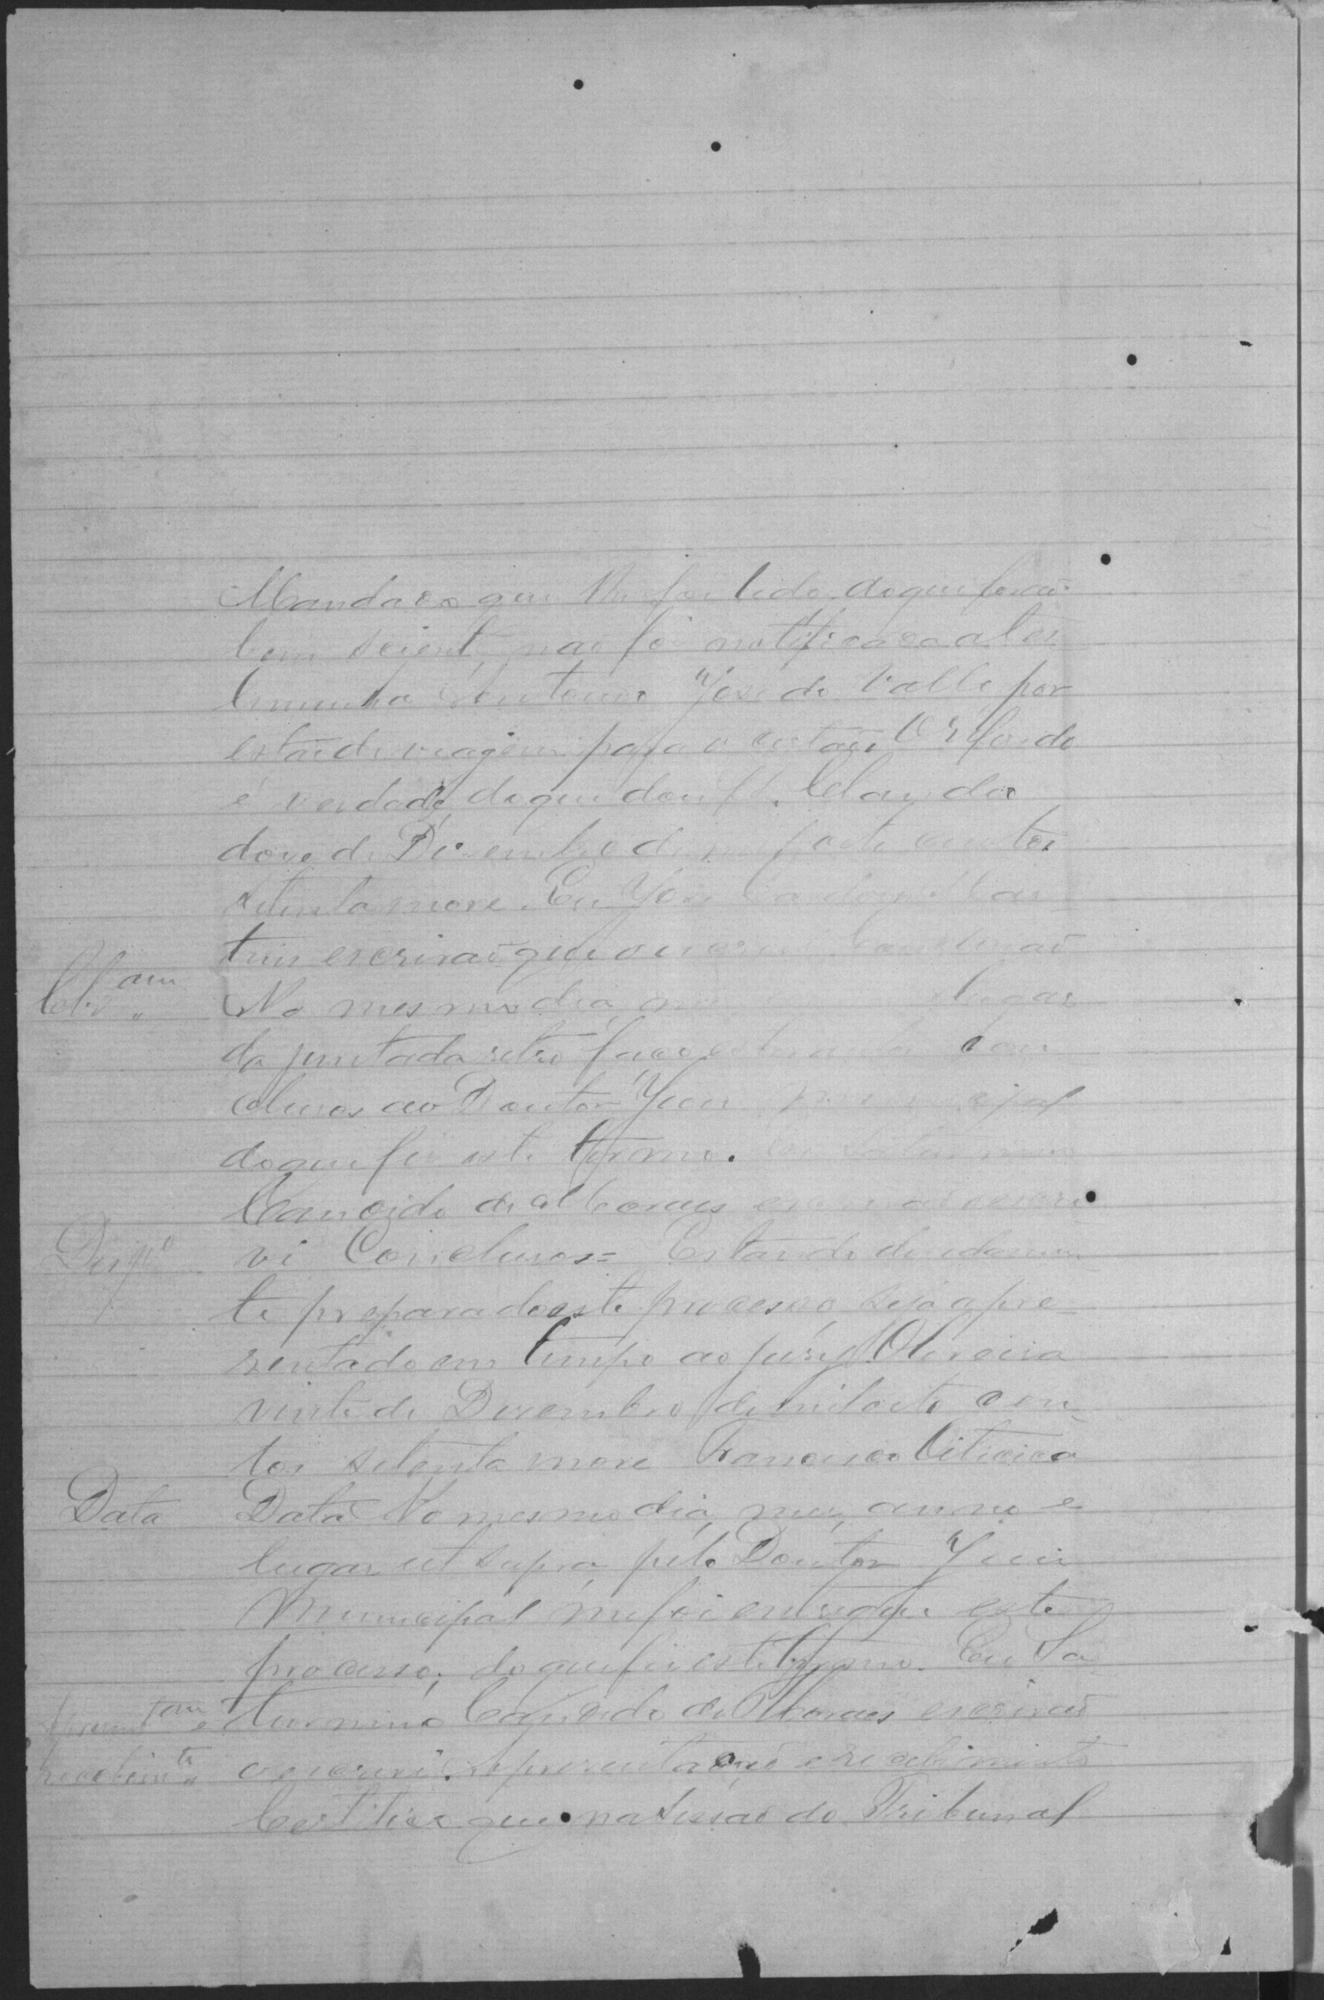 Mandado que lhe foi lido doque ficarão
bem scient, não foi notificada a tes
timunha Antonio José do Valle por
estar de viagem para o sertão O referido
é verdade doque dou fé.
doze de Dezembro de mil oito centos
setenta nove. Eu José Cardoso Mar
tins escrivão que o escrevi Conclusão
Cols.am No mesmo dia, lugar
da juntada retro faço estes autos con
clusos ao Doutor Juiz Municipal
doque fiz este termo. Eu Saturnino
Candido de Moraes escrivão o escre
Desp.o vi Conclusos = Estando devidamen
te preparado este processo seja apre
sentado em tempo ao jury Oliveira
vinte de Dezembro de mil oito cen
tos setenta nove Francisco Oiticica
Data Data No mesmo dia, mez, anno e
lugar ut supra pelo Doutor Juiz
Municipal me foi entregue este
processo; do que fiz este termo. Eu Sa
turnino Candido de Moraes escrivão
recebim.to o escrevi. Apresentação e recebimento
Certifico que na sessão do Tribunal